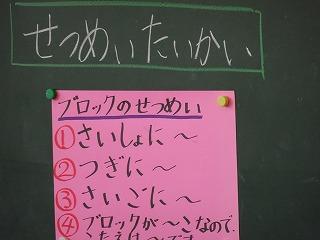 せつめいたいかい
ブロックのせつめい
①さいしょに～
②つぎに～
③さいごに～
④ブロックが～こなので、
こたえは～です